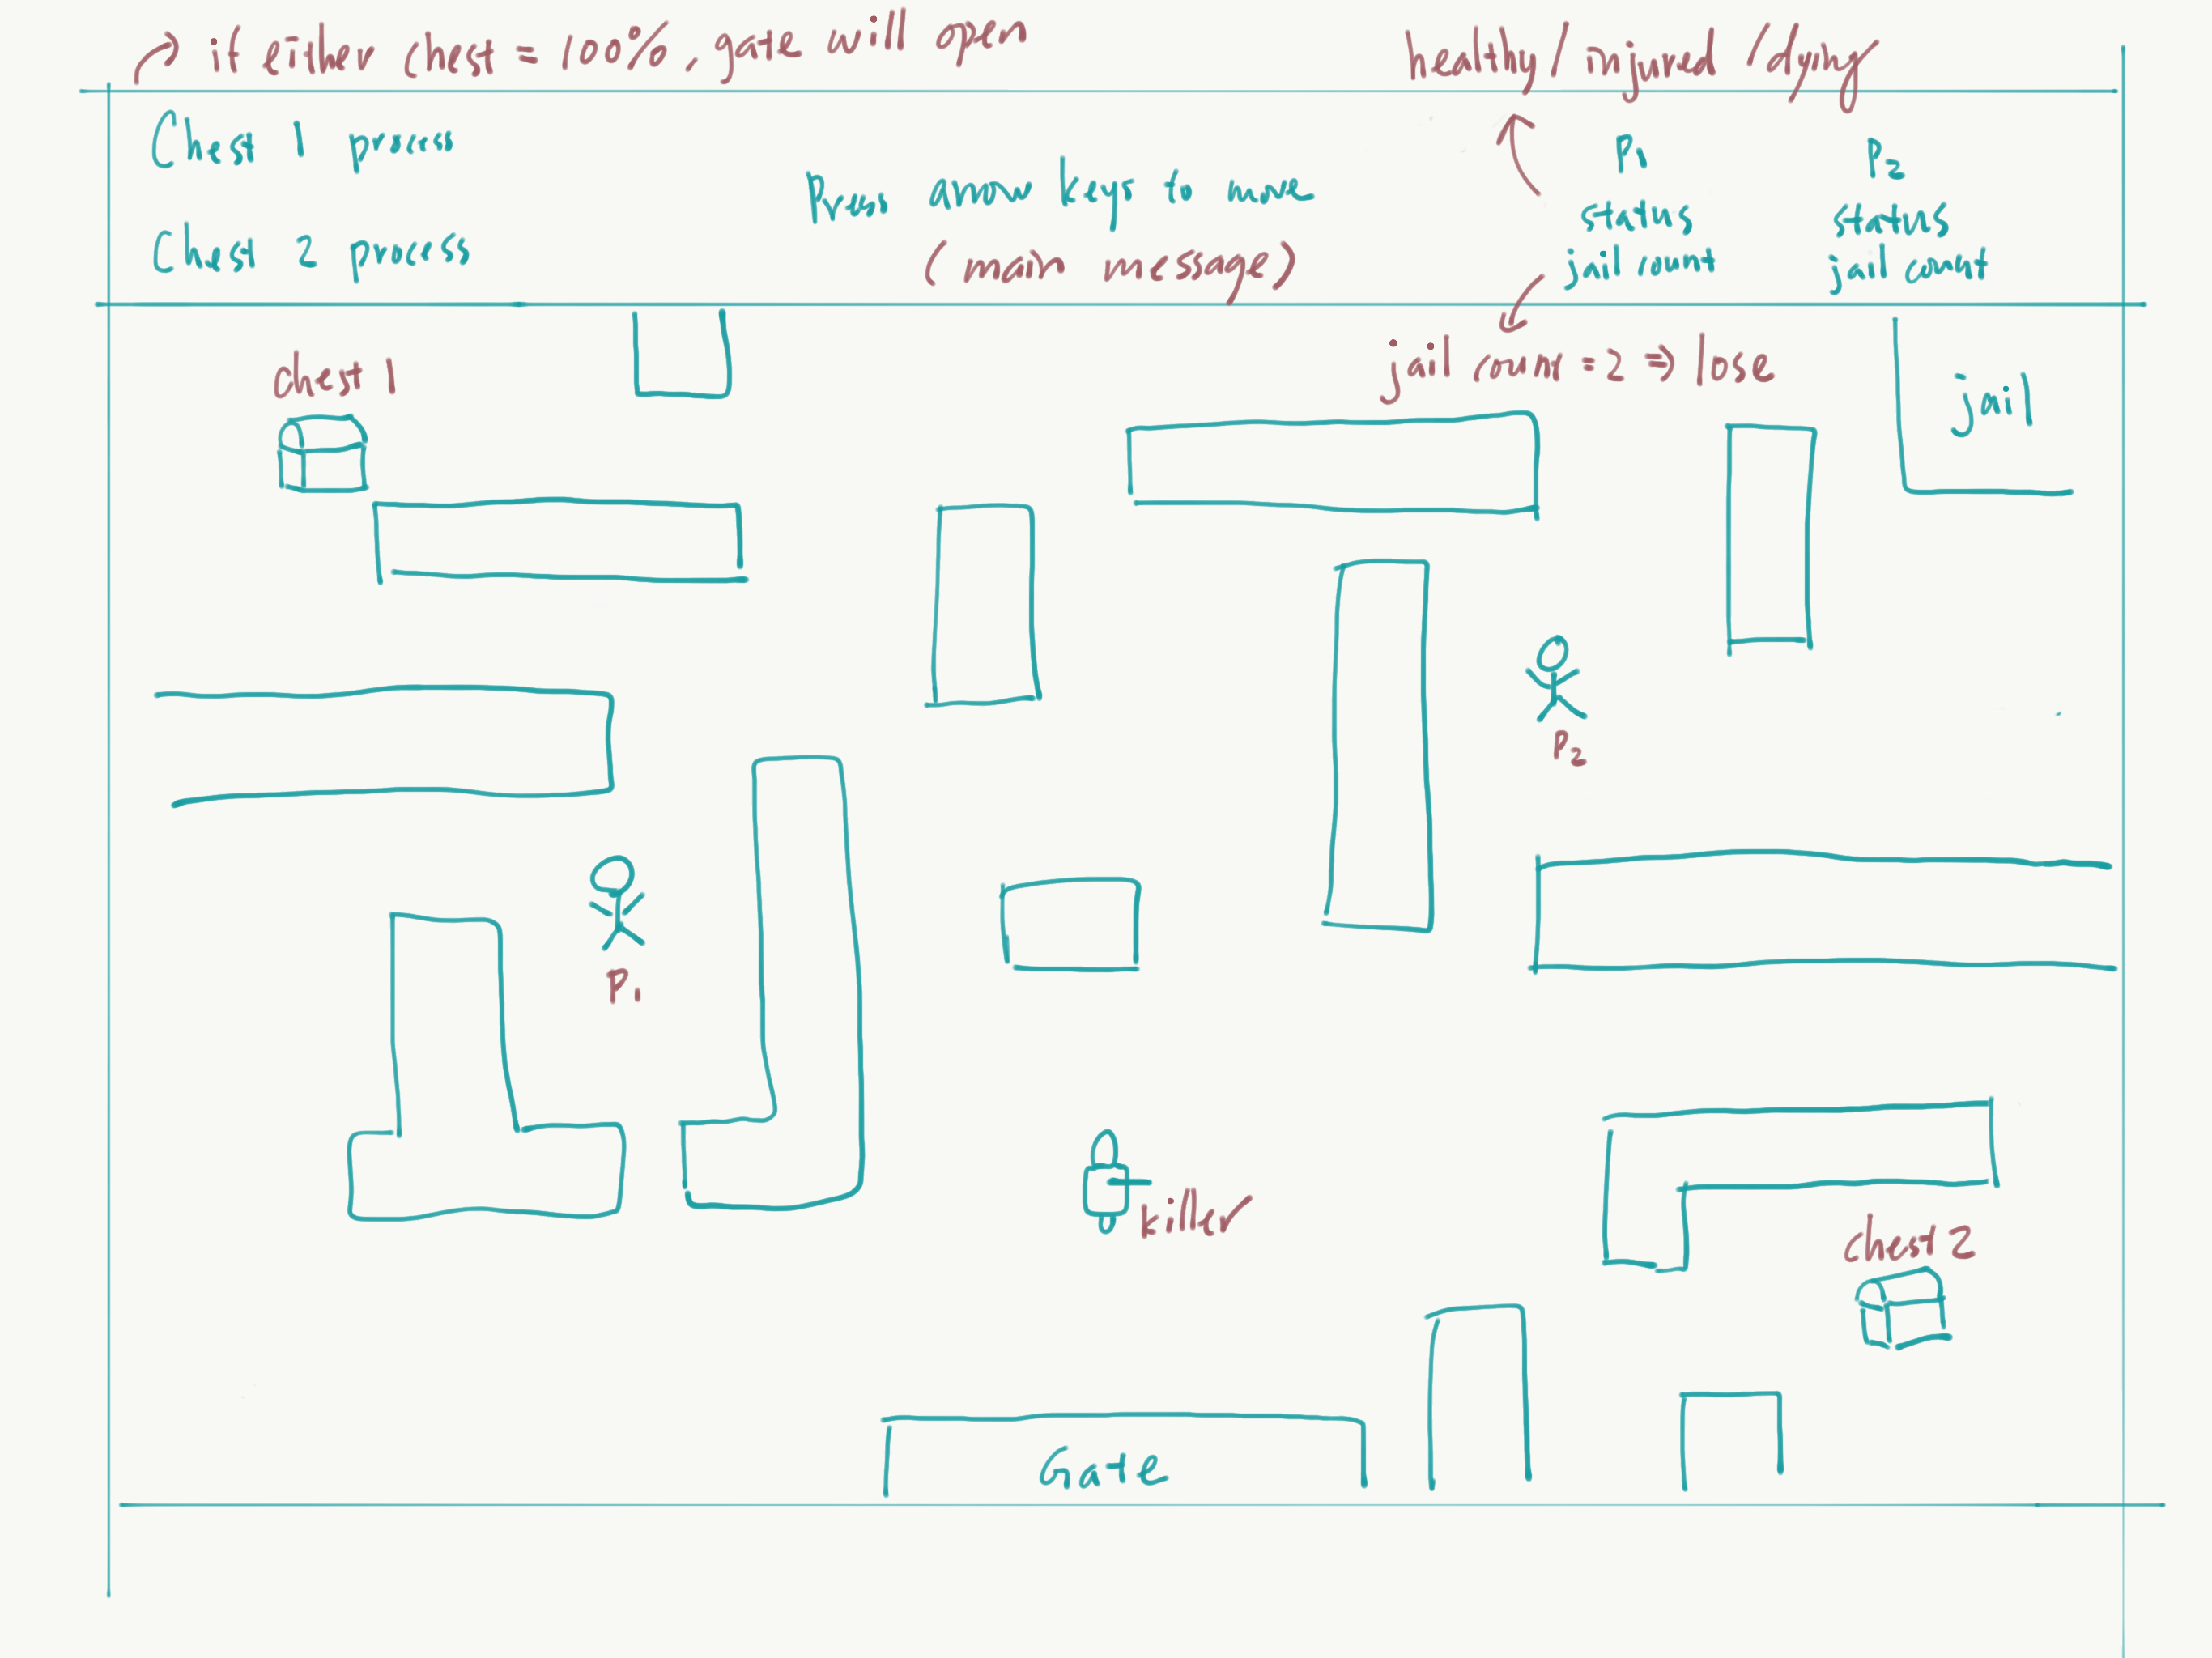 → if either chest = 100%, gate will open
healthy / injured / dying
Chest 1 process
Chest 2 process
Press arrow keys to move
(main message)
P1
status
jail count
P2
status
jail count
jail count = 2 => lose
chest 1
jail
P2
P1
killer
chest 2
Gate